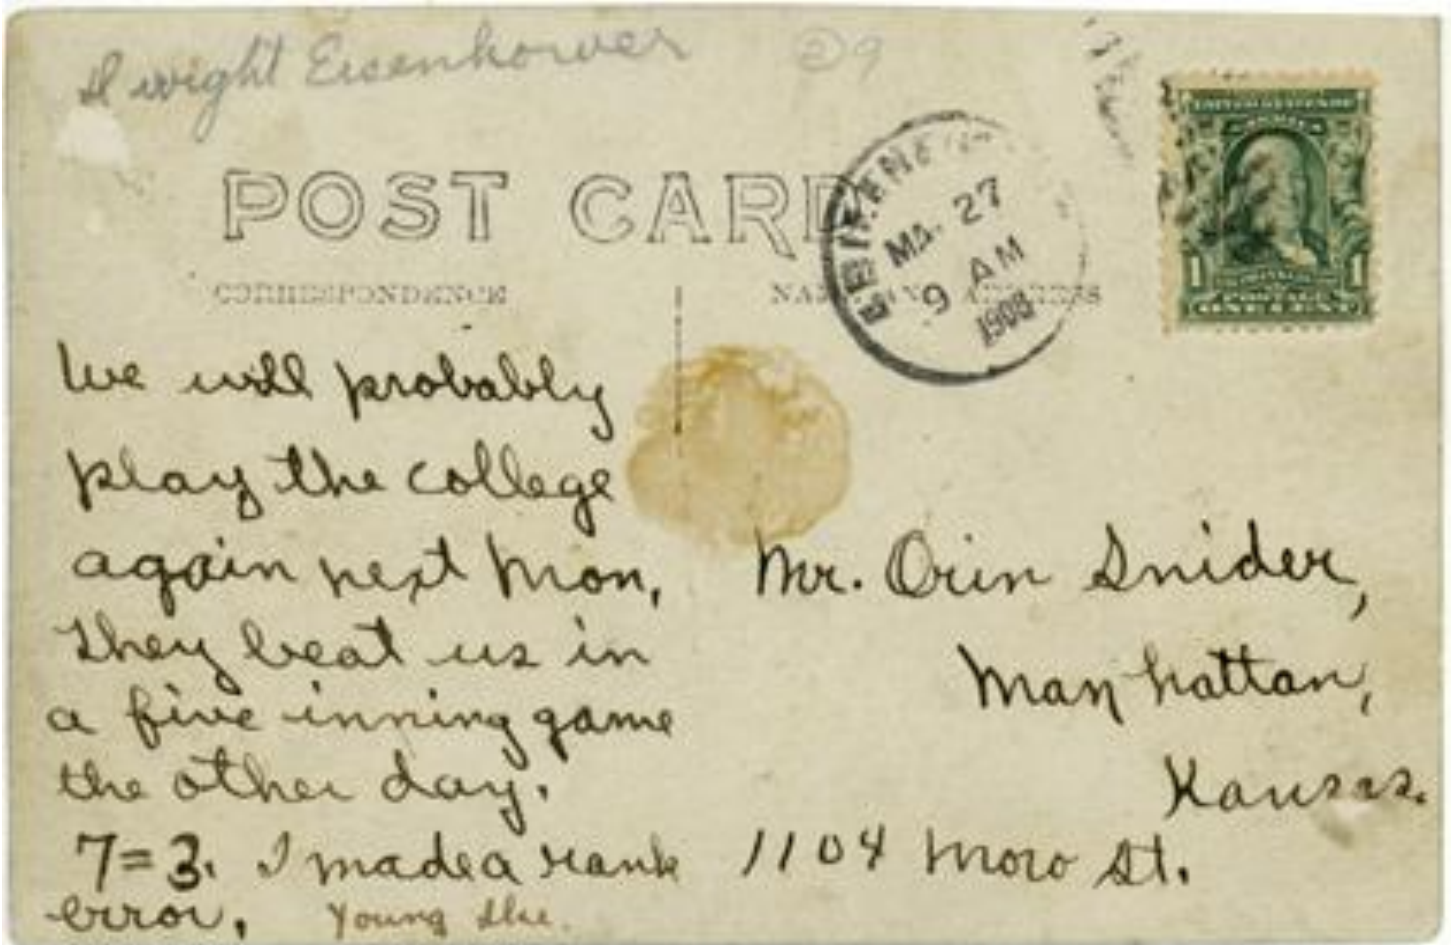 Dwight Eisenhower
POST CARD
CORRESPONDENCE
MA 27
9 AM
1908
UNITED STATES OF
AMERICA
1 1
POSTAGE
ONE CENT
We will probably
play the college
again next Mon,
They beat us in
a five inning game
the other day.
7=3. I made a rank
error. Young Ike.
Mr. Orin Snider,
Manhattan,
Kansas.
1104 Moro St.